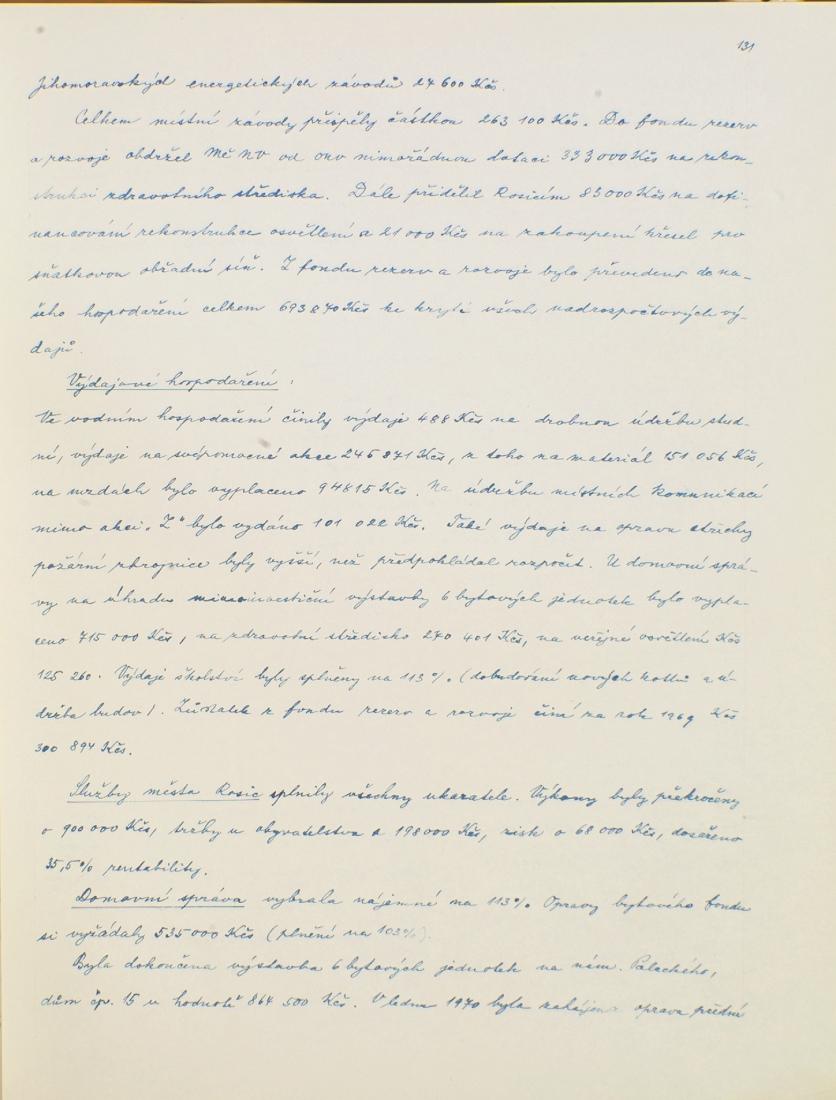 131
Jihomoravských energetických závodů 24 600 Kčs.
Celkem místní závody přispěly částkou 263 100 Kčs. Do fondu rezerv
a rozvoje obdržel MěNV od ONV mimořádnou dotaci 333 000 Kčs na rekon-
strukci zdravotního střediska. Dále přidělil Rosicím 83 000 Kčs na dofi-
nancování rekonstrukce osvětlení a 21 000 Kčs na zakoupení křesel pro
sňatkovou obřadní síň. Z fondu rezerv a rozvoje bylo převedeno do na-
šeho hospodaření celkem 693 840 Kčs ke krytí všech nadrozpočtových vý-
dajů.
Výdajové hospodaření:
Ve vodním hospodaření činily výdaje 488 Kčs na drobnou údržbu stud-
ní, výdaje na svépomocné akce 245 871 Kčs, z toho na materiál 151 056 Kčs,
na mzdách bylo vyplaceno 94 815 Kčs. Na údržbu místních komunikací
mimo akci „Z" bylo vydáno 101 022 Kčs. Také výdaje na opravu střechy
požární zbrojnice byly vyšší, než předpokládal rozpočet. U domovní sprá-
vy na úhradu investiční výstavby 6 bytových jednotek bylo vypla-
ceno 715 000 Kčs, na zdravotní středisko 270 401 Kčs, na veřejné osvětlení Kčs
125 260. Výdaje školství byly splněny na 113 %. (dobudování nových kotlů a ú-
držba budov). Zůstatek z fondu rezerv a rozvoje činí za rok 1969 Kčs
300 894 Kčs.
Služby města Rosic splnily všechny ukazatele. Výkony byly překročeny
o 900 000 Kčs, tržby u obyvatelstva o 198 000 Kčs, zisk o 68 000 Kčs, dosaženo
35,5 % rentability.
Domovní správa vybrala nájemné na 113 %. Opravy bytového fondu
si vyžádaly 535 000 Kčs (plnění na 103 %).
Byla dokončena výstavba 6 bytových jednotek na nám. Palackého,
dům čp. 15 v hodnotě 864 500 Kčs. V lednu 1970 byla zahájena oprava přední